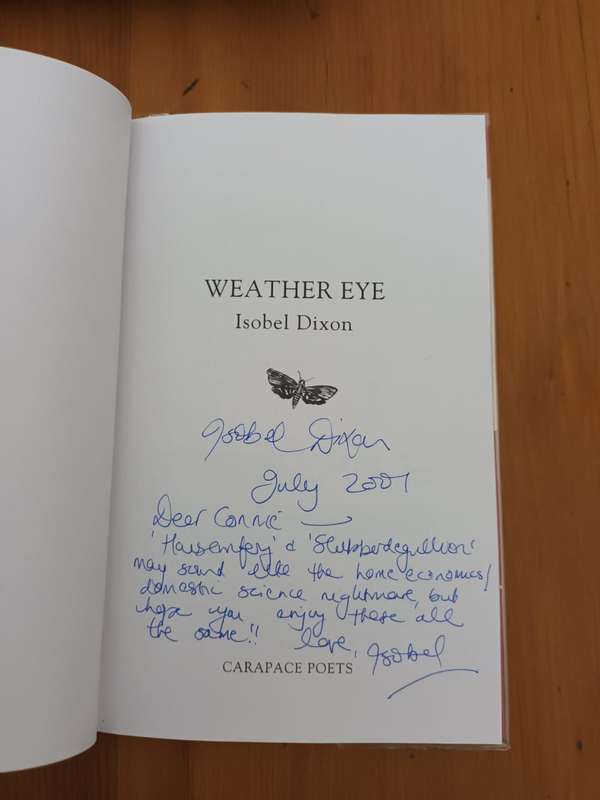 WEATHER EYE
Isobel Dixon
Isobel Dixon
July 2001
Dear Connie
'Housewifery' & 'Slubberdegullion'
may sound like the home economics/
domestic science nightmare, but
hope you enjoy these all
the same!! love, Isobel
CARAPACE POETS